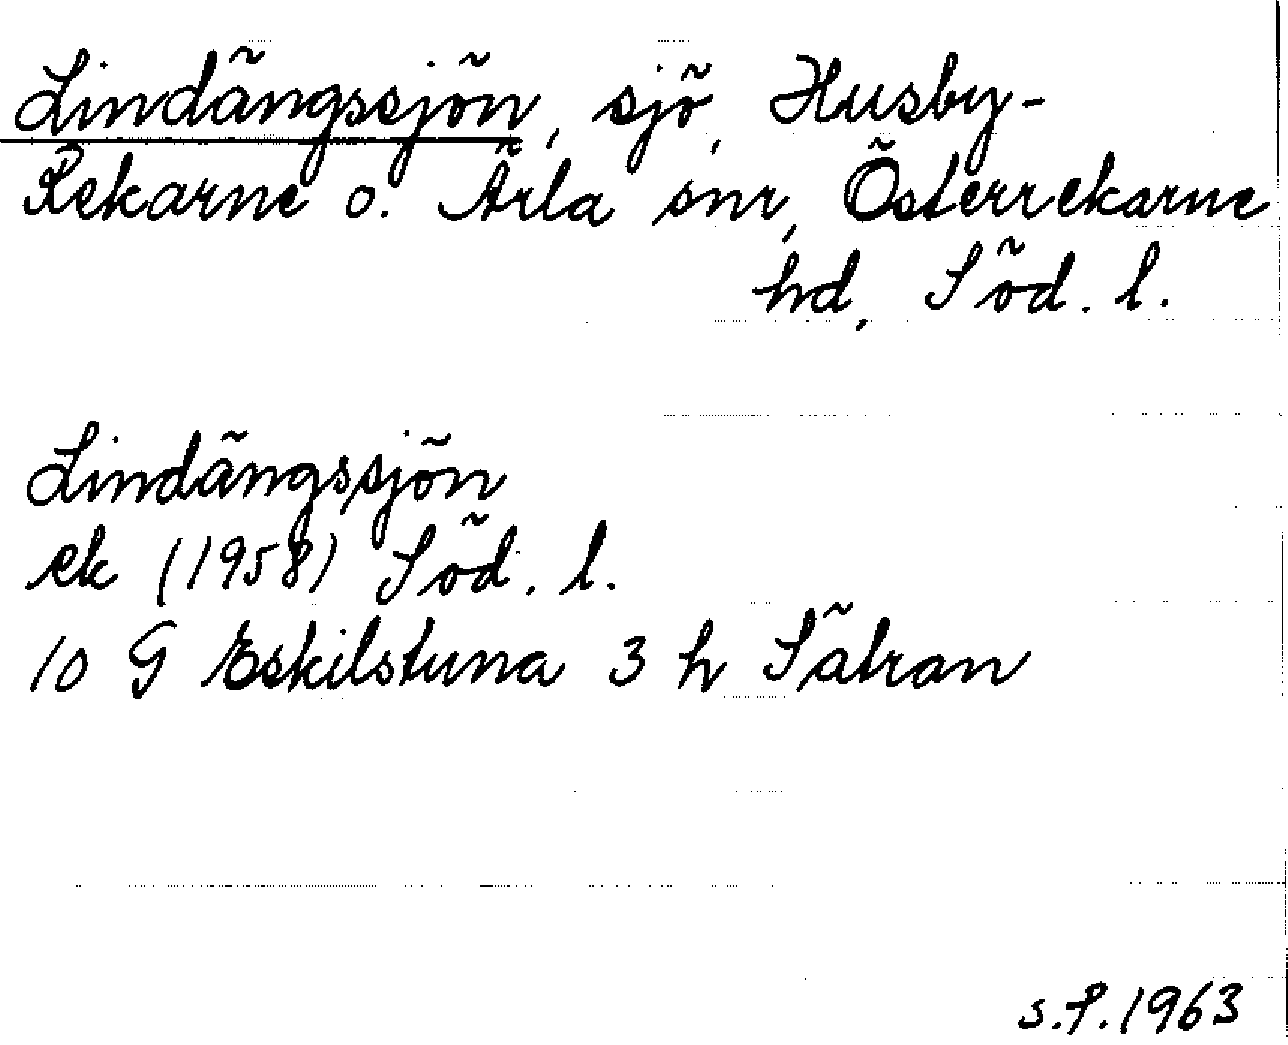 Lindängssjön, sjö, Husby-
Rekarne o. Ärla snr, Österrekarne
hd, Söd. l.
Lindängssjön
ek (1958) Söd. l.
10 G Eskilstuna 3 h Sätran
s.f. 1963